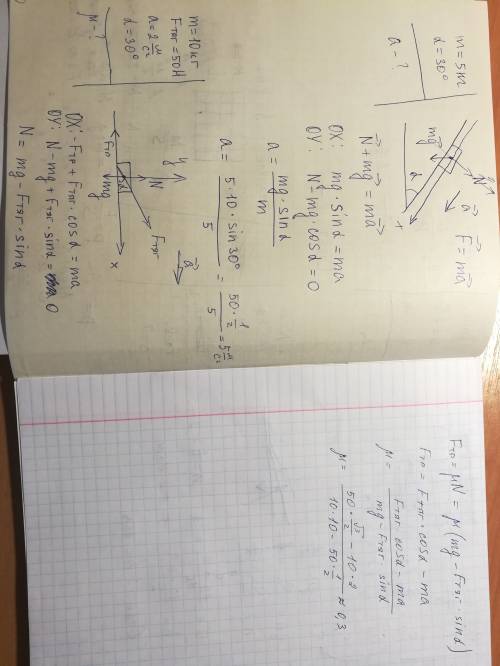 m = 5 м
α = 30°
a - ?
N⃗
mg⃗
α
x
a⃗
F⃗ = ma⃗
N⃗ + mg⃗ = ma⃗
OX: mg · sinα = ma
OY: N - mg · cosα = 0
a = mg · sinα / m
a = 5 · 10 · sin 30° / 5 = 50 · 1/2 / 5 = 5 м/с²
m = 10 кг
Fтяг = 50 Н
a = 2 м/с²
α = 30°
μ - ?
y
a⃗
N
Fтяг
α
Fтр
mg
x
OX: - Fтр + Fтяг · cosα = ma
OY: N - mg + Fтяг · sinα = 0
N = mg - Fтяг · sinα
Fтр = μN = μ (mg - Fтяг · sinα)
Fтр = Fтяг · cosα - ma
μ = Fтяг · cosα - ma / mg - Fтяг · sinα
μ = 50 · √3/2 - 10 · 2 / 10 · 10 - 50 · 1/2 ≈ 0,3